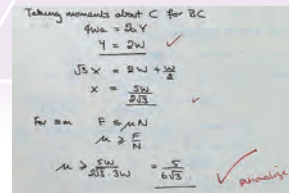 Taking moments about C for BC
4wa = 2aY
Y = 2w
√3 x = 2w + w/2
x = 5w/2√3
For =m F ≤ μN
μ ≥ F/N
μ ≥ 5w/2√3·3w = 5/6√3